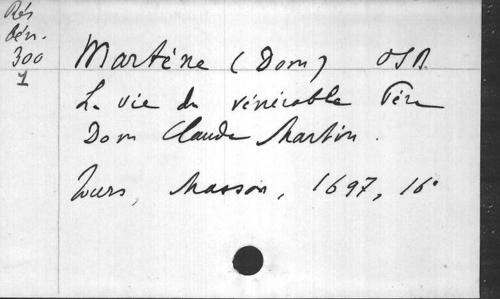 Rés
bén.
300
1
Martène (Dom) OSB.
La vie du vénérable Père
Dom Claude Martin.
Tours, Masson, 1697, 16°